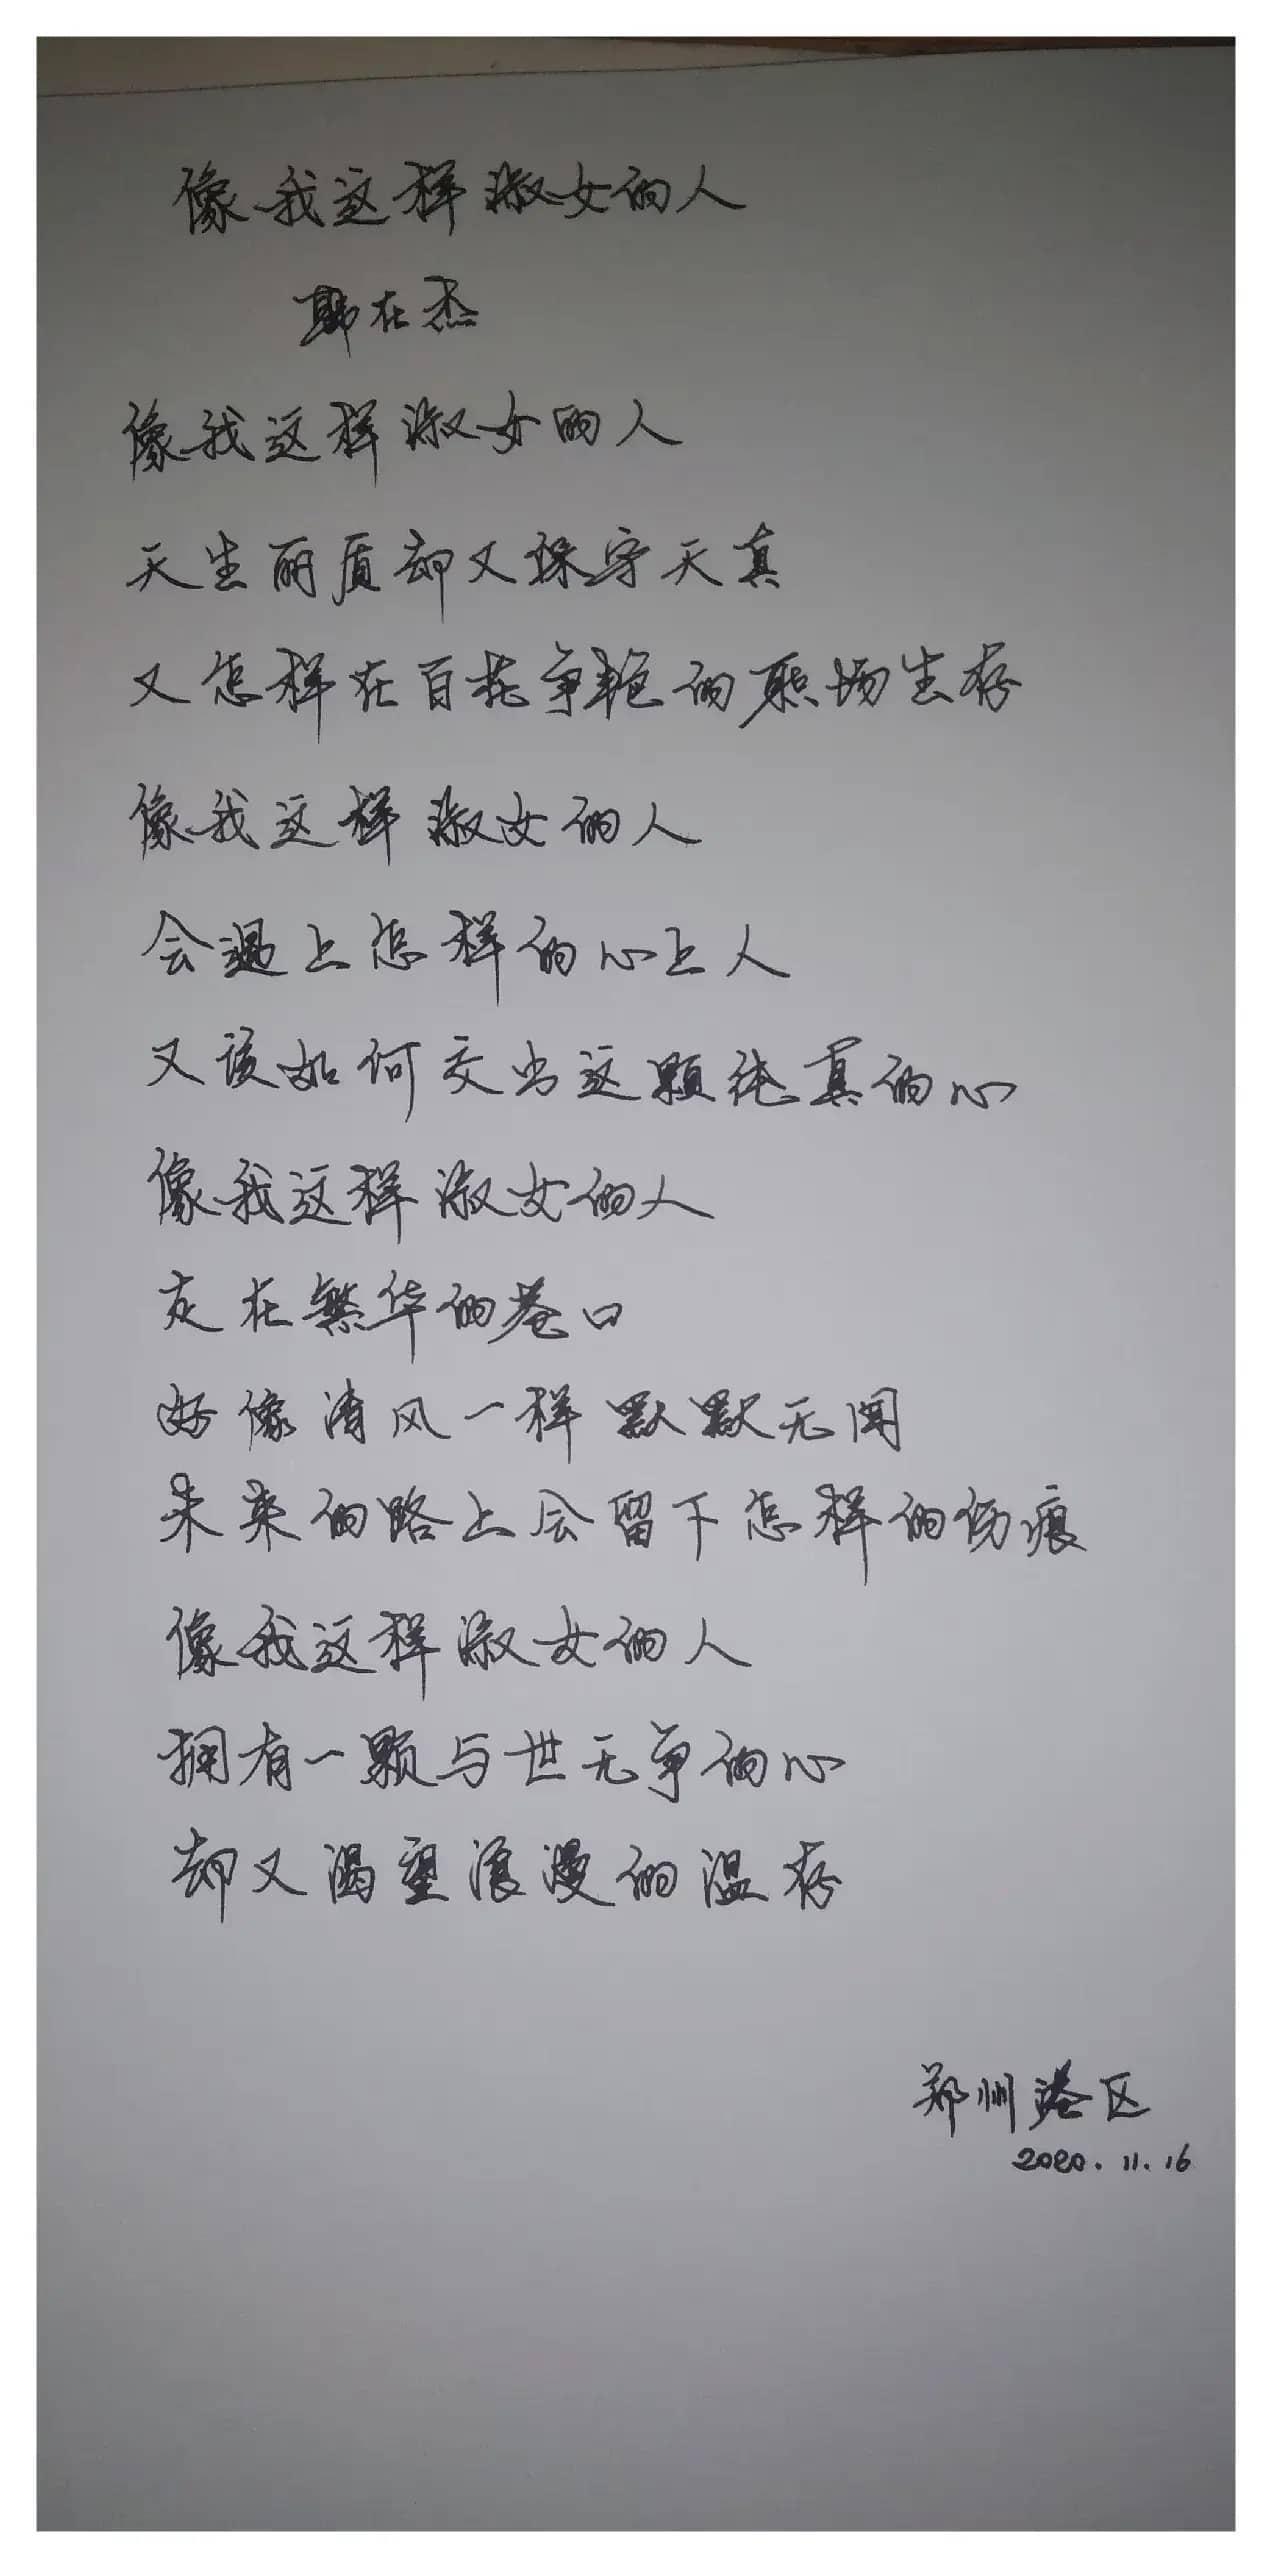 像我这样淑女的人
韩在杰
像我这样淑女的人
天生丽质却又保守天真
又怎样在百花争艳的职场生存
像我这样淑女的人
会遇上怎样的心上人
又该如何交出这颗纯真的心
像我这样淑女的人
在繁华的巷口
好像清风一样默默无闻
未来的路上会留下怎样的伤痕
像我这样淑女的人
拥有一颗与世无争的心
却又渴望浪漫的温存
郑州港区
2020.11.16